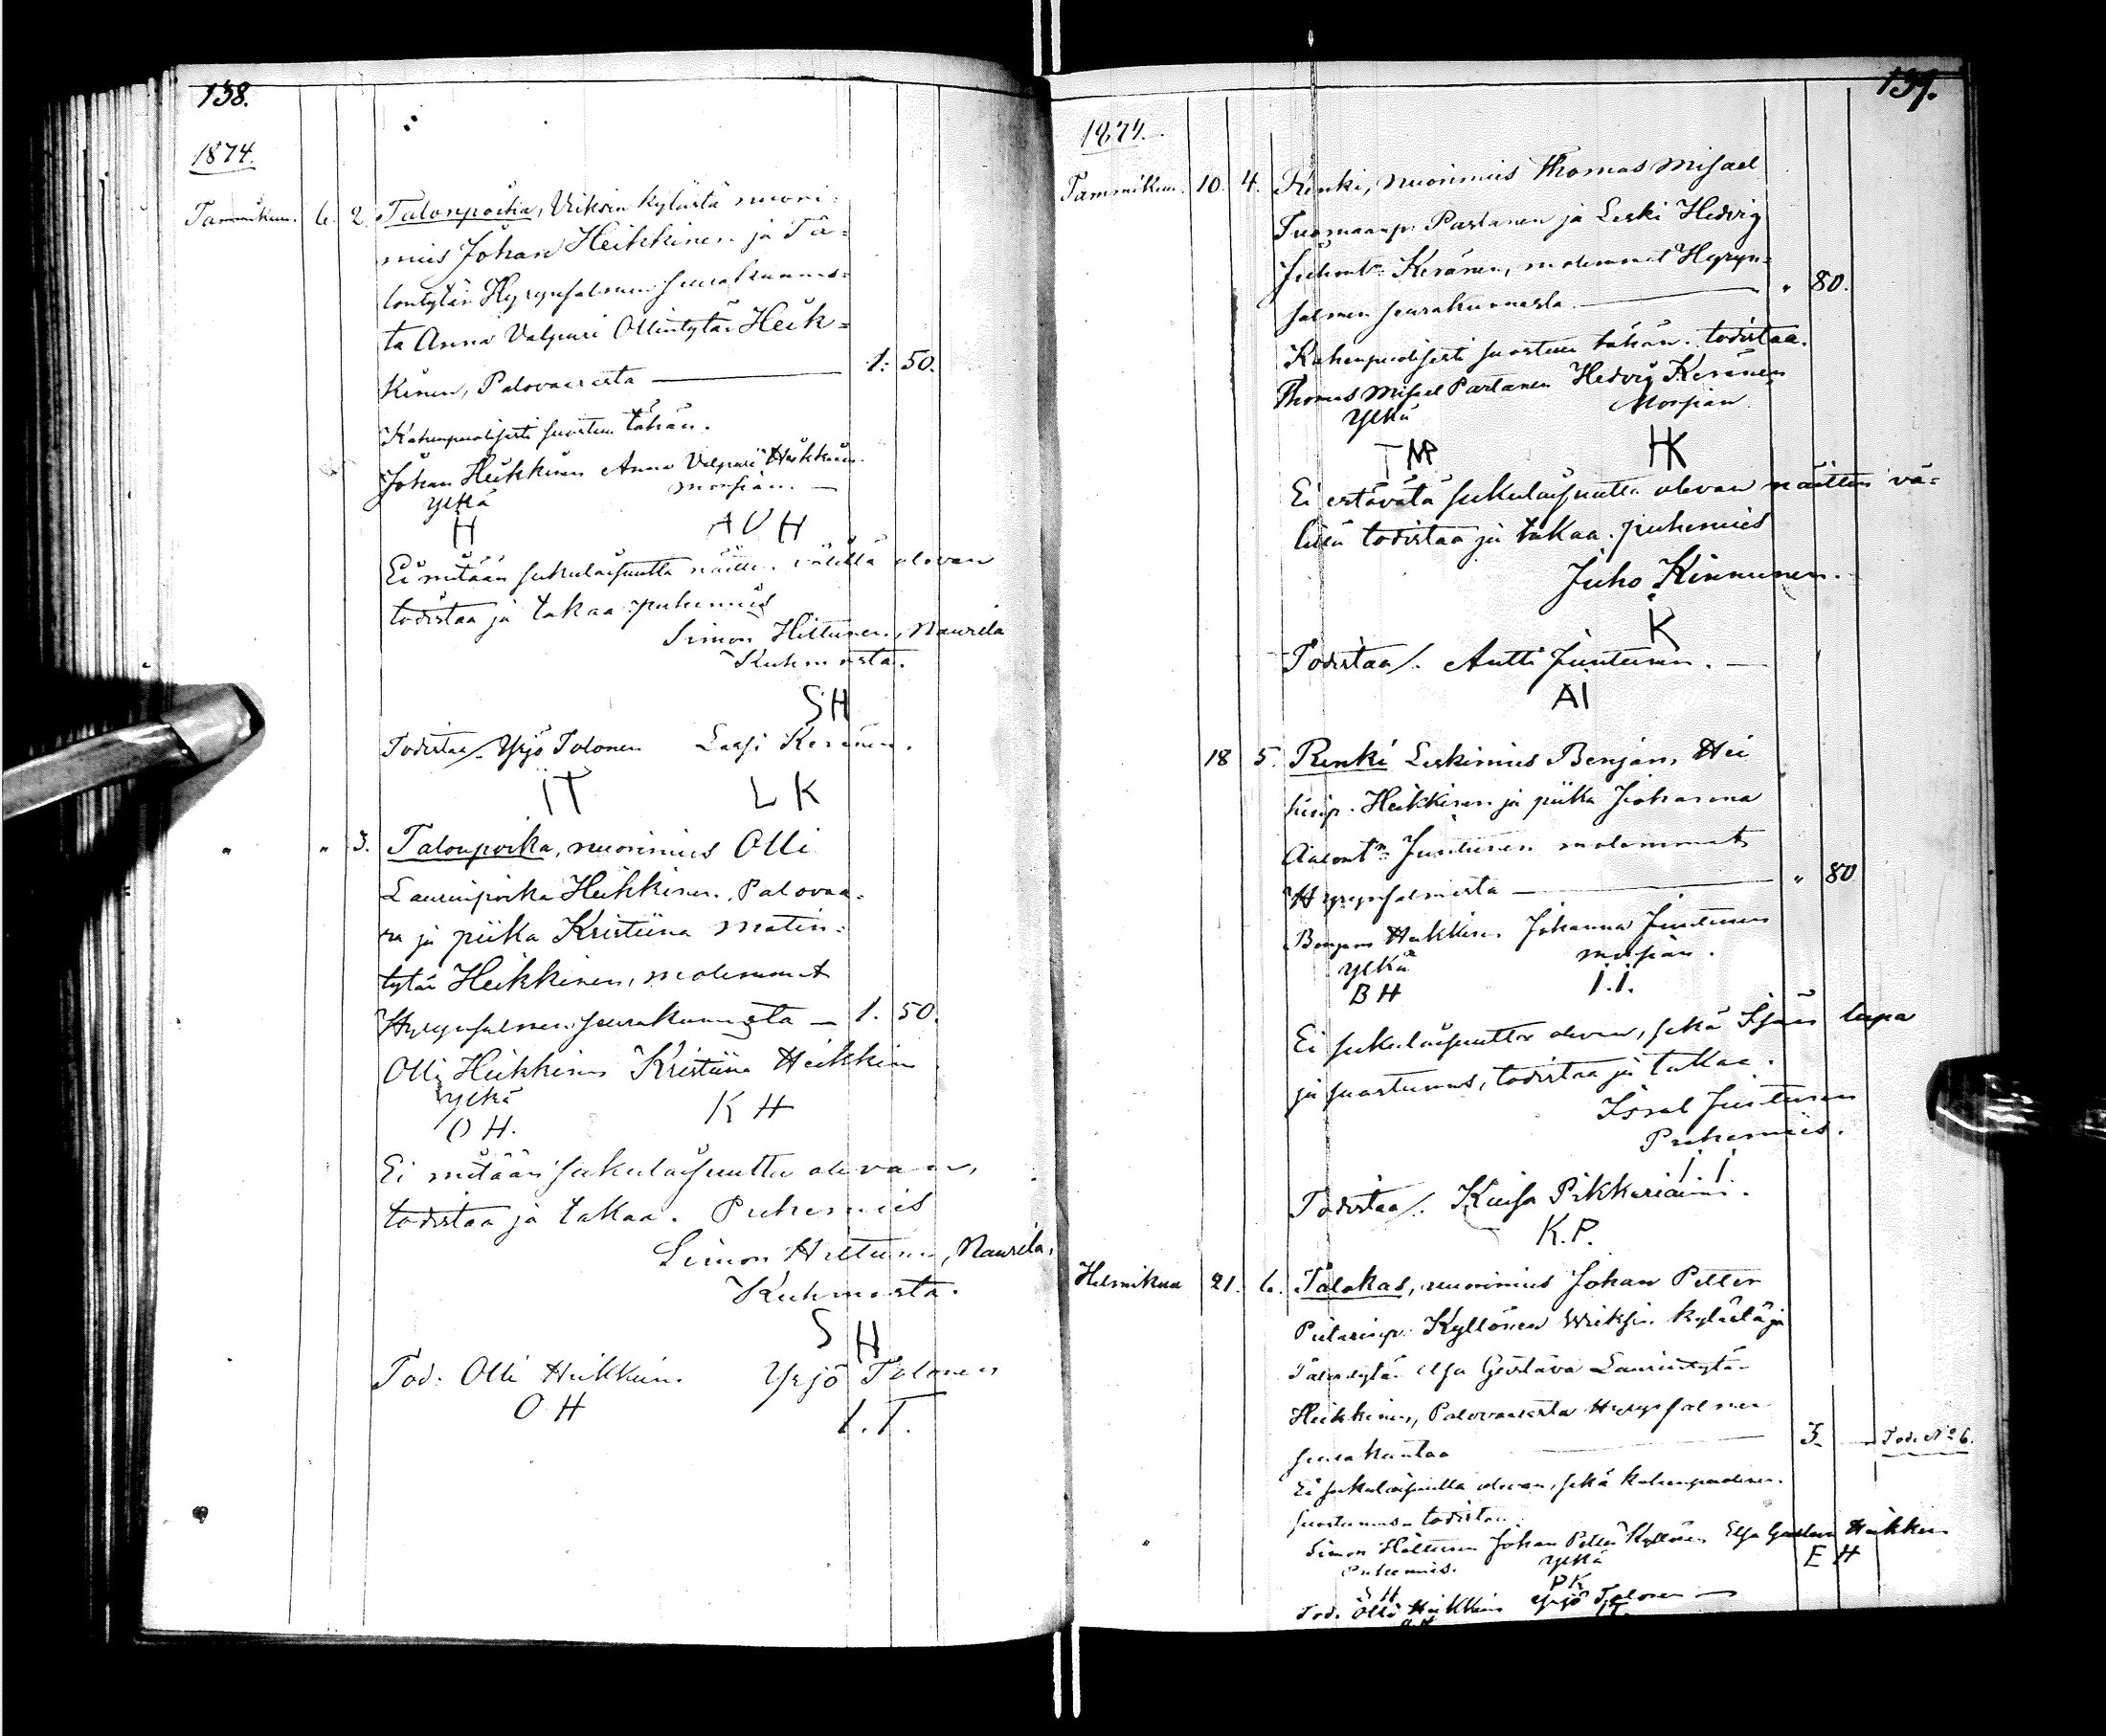 138.
1874.
Tammikuu. 6. 2. Talonpoika, Viiksin kylästä nuori-
mies Johan Heikkinen ja Ta-
lontytär Hyrynsalmen seurakunnas-
ta Anna Valpuri Ollintytär Heik-
kinen, Palovaarasta — 1: 50.
Kahenpuolisesti suostuu tähän.
Johan Heikkinen Anna Valpuri Heikkinen.
Ylkä morsian. —
H A V H
Ei mitään sukulaisuutta näitten välillä olevan
todistaa ja takaa puhemies
Simon Hiltunen, Naurela
Kuhmosta.
S H
Todistaa /. Yrjö Tolonen Lassi Keränen.
I T L K
" " 3. Talonpoika, nuorimies Olli
Laurinpoika Heikkinen, Palovaa-
ra ja piika Kristiina Matin-
tytär Heikkinen, molemmat
Hyrynsalmen seurakunnasta — 1. 50.
Olli Heikkinen Kristiina Heikkin
ylkä
O H. K H
Ei mitään sukulaisuutta olevan,
todistaa ja takaa. Puhemies
Simon Hiltunen, Naurela,
Kuhmosta.
S H
Tod. Olli Heikkin. Yrjö Tolonen
O H I. T.
139.
1874.
Tammikuu. 10. 4. Renki, nuorimies Thomas Misael
Tuomaanp. Partanen ja Leski Hedvig
Juhont. Keränen, molemmat Hyryn-
salmen seurakunnasta. — " 80.
Kahenpuolisesti suostuu tähän. todistaa.
Thomas Misael Partanen Hedvig Keränen
Ylkä Morsian
T M P H K
Ei estävätä sukulaisuutta olevan näitten vä-
lillä todistaa ja takaa. puhemies
Juho Kinnunen.
K
Todistaa /. Antti Juntunen. —
A I
18 5. Renki Leskimies Benjam. Hei
kinp. Heikkinen ja piika Johanna
Juntunen molemmat
Hyrynsalmesta — " 80
Benjam Heikkinen Johanna Juntunen
ylkä morsian.
B H I. I.
Ei sukulaisuutta olevan, sekä Isän lupa
ja suostumus, todistaa ja takaa.
Juntunen
Puhemies.
I I
Todistaa /. Kaisa Pikkarainen.
K. P.
Helmikuu 21. 6. Talokas, nuorimies Johan Petter
Pietarinp. Kyllönen Wiiksin kylästä ja
Talontytär Elsa Gustava Laurintytär
Heikkinen, Palovaarasta Hyrynsalmen
seurakuntaa — 3. — Tod. No 6.
Ei sukulaisuutta olevan, sekä kahenpuolinen
suostumus todistaa
Simon Hiltunen Johan Petter Kyllönen Elsa Gustava Heikkin
Puhemies. Ylkä E H
S H P K
Tod. Olli Heikkin Yrjö Tolonen —
O H I T.